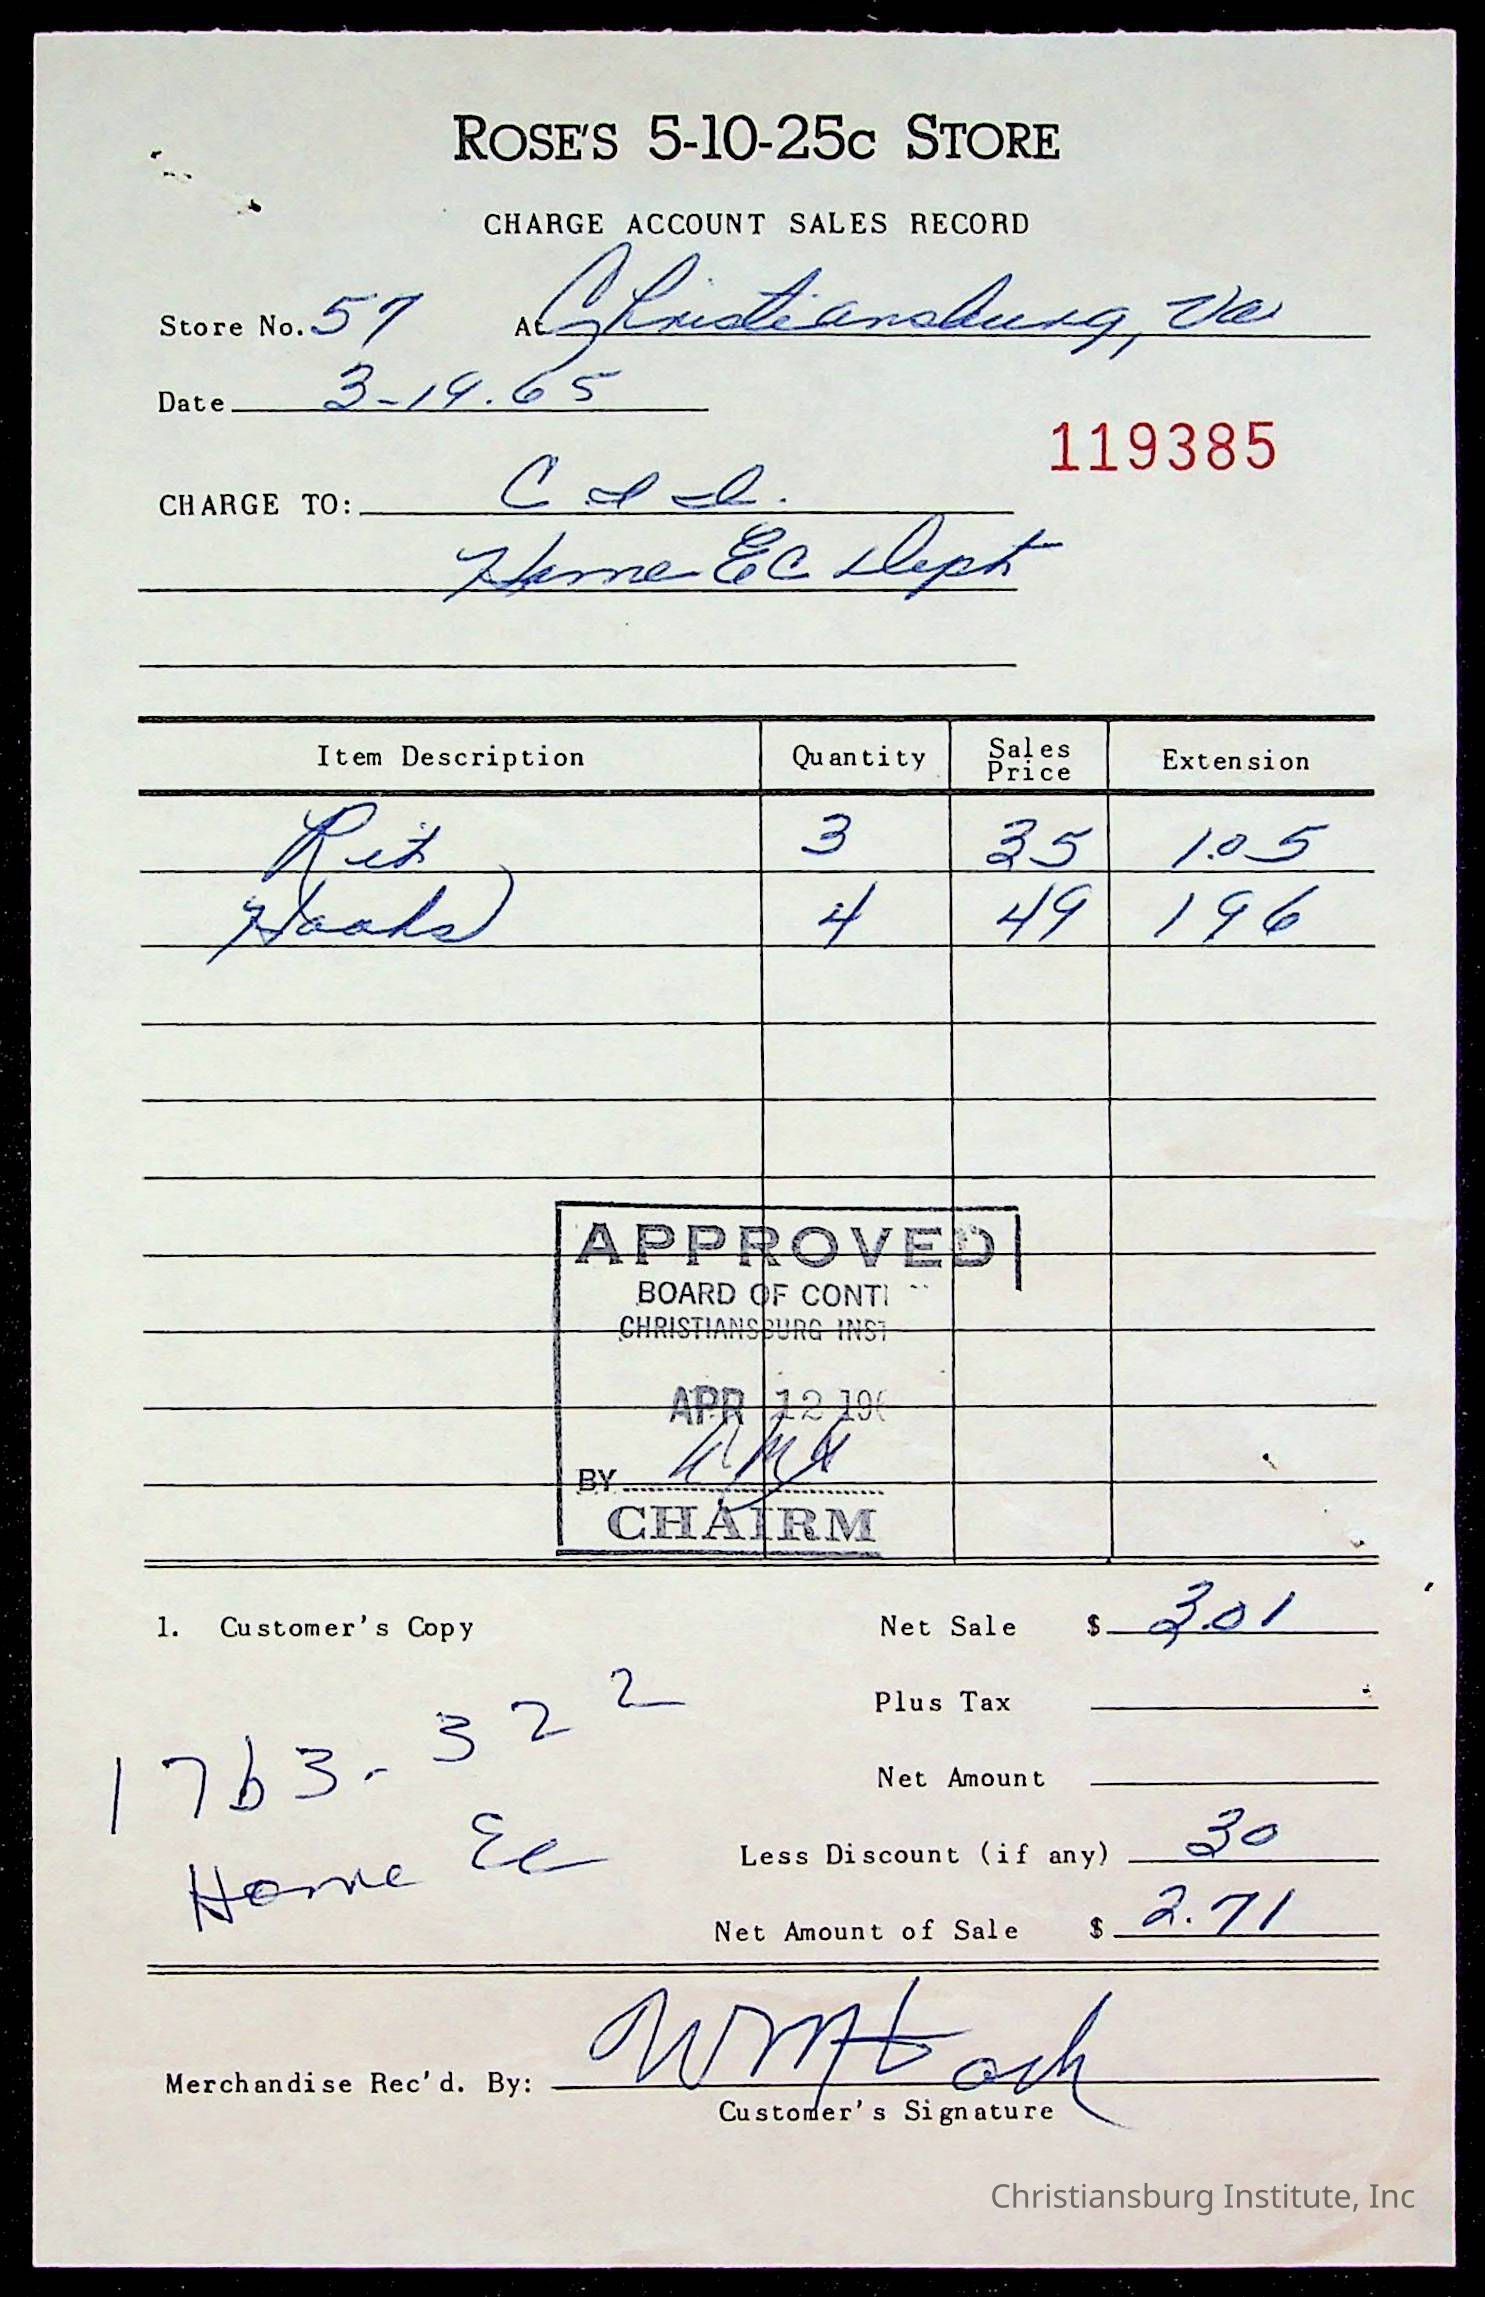 ROSE'S 5-10-25c STORE
CHARGE ACCOUNT SALES RECORD
Store No. 57 At Christiansburg, Va
Date 3-19.65
119385
CHARGE TO: C I I.
Home Ec Dept
Item Description Quantity Sales Price Extension
Rit 3 35 1.05
Hooks 4 49 196
APPROVED
BOARD OF CONT
CHRISTIANSBURG INST
APR 12 19
BY
CHAIRM
1. Customer's Copy Net Sale $ 3.01
Plus Tax
1763-322
Net Amount
Less Discount (if any) 30
Home Ec
Net Amount of Sale $ 2.71
Merchandise Rec'd. By:
Customer's Signature
Christiansburg Institute, Inc